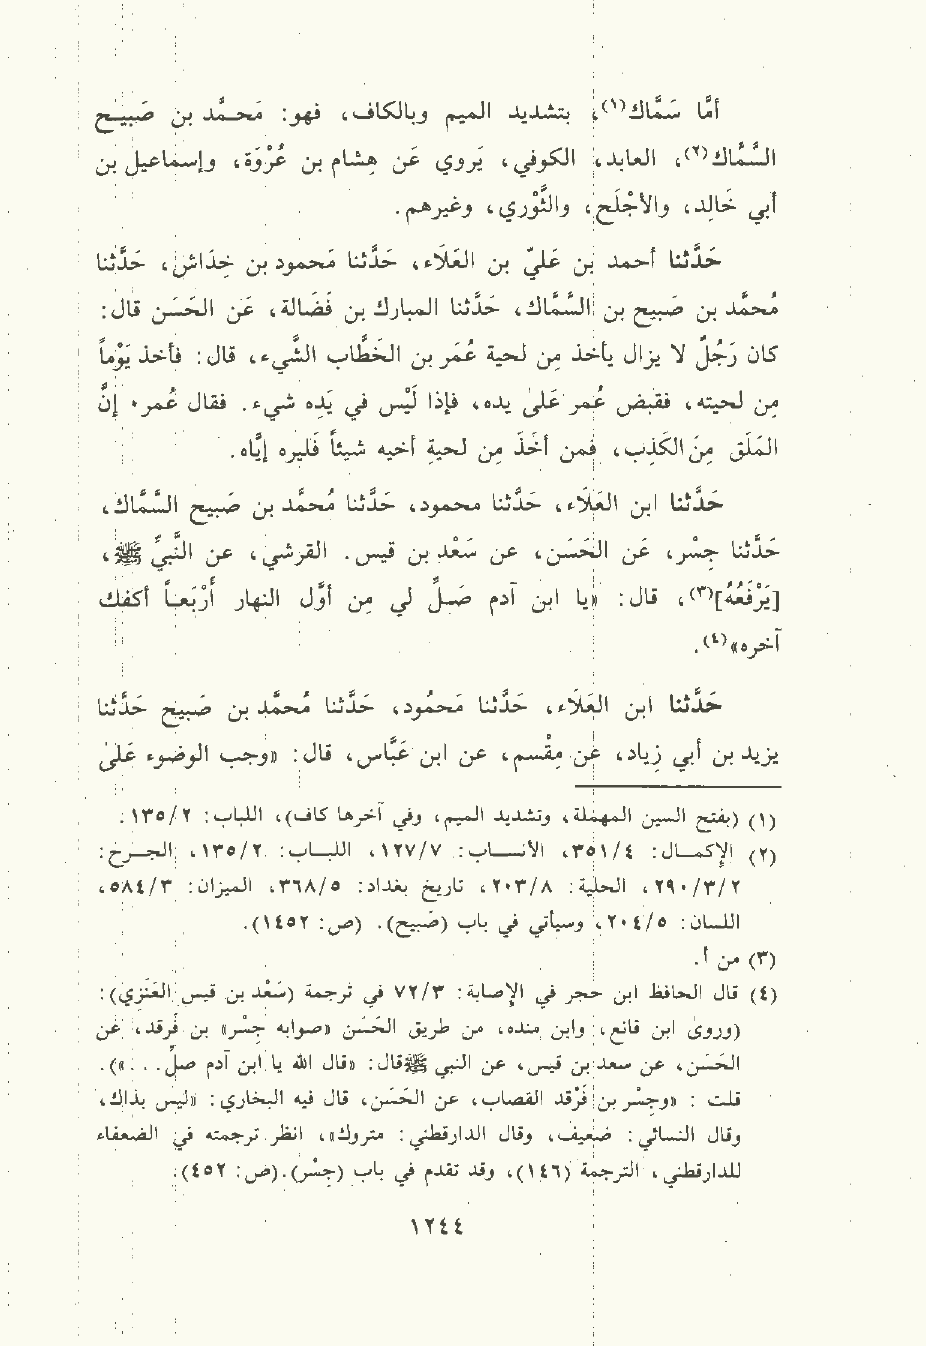 أمَّا سَمَّاك(١)، بتشديد الميم وبالكاف، فهو: مَحمَّد بن صَبيح
السَّمَّاك(٢)، العابد، الكوفي، يَروي عَن هِشام بن عُرْوَة، وإسماعيل بن
أبي خَالِد، والأجْلَح، والثَّوْري، وغيرهم.
حَدَّثنا أحمد بن عَليّ بن العَلَاء، حَدَّثنا مَحمود بن خِدَاش، حَدَّثنا
مُحمَّد بن صَبيح بن السَّمَّاك، حَدَّثنا المبارك بن فَضَالة، عَن الحَسَن قال:
كان رَجُلٌ لا يزال يأخذ مِن لحية عُمَر بن الخَطَّاب الشَّيء، قال: فأخذ يَوْماً
مِن لحيته، فقبض عُمر عَلى يده، فإذا لَيْس في يَدِه شيء. فقال عُمر٠ إنَّ
المَلَق مِنَ الكَذِب، فمن أخَذَ مِن لحيةِ أخيه شيئاً فَليره إيَّاه.
حَدَّثنا ابن العَلَاء، حَدَّثنا محمود، حَدَّثنا مُحمَّد بن صَبيح السَّمَّاك،
حَدَّثنا جِسْر، عَن الحَسَن، عن سَعْد بن قيس. القرشي، عن النَّبيِّ ﷺ،
[يَرْفَعُهُ](٣)، قال: «يا ابن آدم صَلِّ لي مِن أوَّل النهار أَرْبَعاً أكفك
آخره»(٤).
حَدَّثنا ابن العَلَاء، حَدَّثنا مَحمُود، حَدَّثنا مُحمَّد بن صَبيح حَدَّثنا
يزيد بن أبي زِياد، عَن مِقْسم، عن ابن عَبَّاس، قال: «وجب الوضوء عَلى
(١) (بفتح السين المهملة، وتشديد الميم، وفي آخرها كاف)، اللباب: ١٣٥/٢.
(٢) الإكمـال: ٣٥١/٤، الأنسـاب: ١٢٧/٧، اللبـاب: ١٣٥/٢، الجـرح:
٢٩٠/٣/٢، الحلية: ٢٠٣/٨، تاريخ بغداد: ٣٦٨/٥، الميزان: ٥٨٤/٣،
اللسان: ٢٠٤/٥، وسيأتي في باب (صَبيح). (ص: ١٤٥٢).
(٣) من أ.
(٤) قال الحافظ ابن حجر في الإصابة: ٧٢/٣ في ترجمة (سَعْد بن قيس العَنَزي):
(وروى ابن قانع، وابن منده، من طريق الحَسَن «صوابه جِسْر» بن فَرقد، عن
الحَسَن، عن سعد بن قيس، عن النبي ﷺ قال: «قال الله يا ابن آدم صلِّ. . .»).
قلت : «وجِسْر بن فَرْقد القصاب، عن الحَسَن، قال فيه البخاري: «ليس بذاك،
وقال النسائي: ضعيف، وقال الدارقطني: متروك»، انظر ترجمته في الضعفاء
للدارقطني، الترجمة (١٤٦)، وقد تقدم في باب (جِسْر).(ص: ٤٥٢).
١٢٤٤